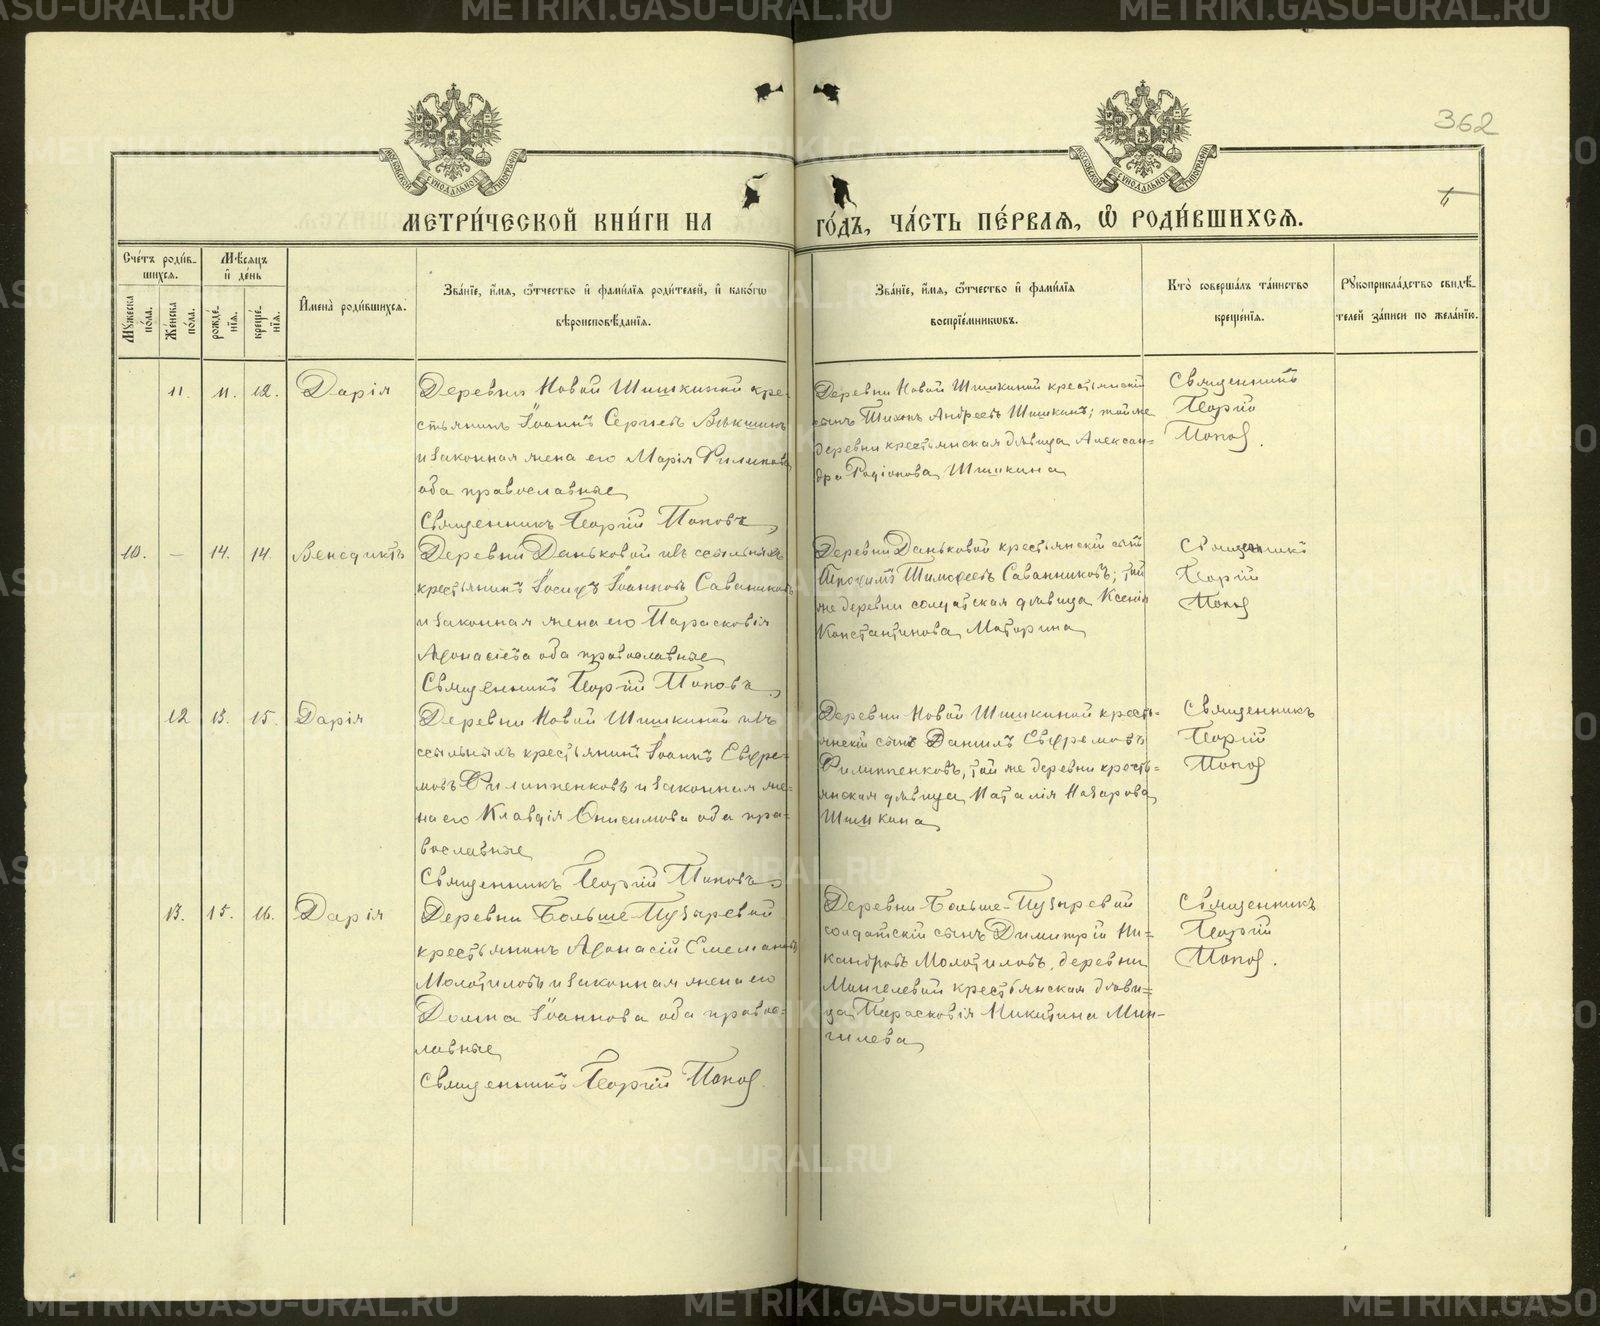 362
МОСКОВСКОЙ СѴНОДАЛЬНОЙ ТИПОГРАФІИ
МОСКОВСКОЙ СѴНОДАЛЬНОЙ ТИПОГРАФІИ
МЕТРИ́ЧЕСКОЙ КНИ́ГИ НА
ГО́ДЪ, ЧА́СТЬ ПЕ́РВАЯ, Ѡ҆ РОДИ́ВШИХСЯ.
Сче́тъ роди́в-
шихся.
Мꙋжеска
по́ла.
Же́нска
по́ла.
Мѣ́сяцъ
и҆ де́нь
рожде́-
нїя.
креще́-
нїя.
И҆мена̀ роди́вшихся.
Зва́нїе, и҆́мя, ѻ҆́тчество и҆ фами́лїя роди́телей, и҆ како́гѡ
вѣроисповѣ́данїя.
Зва́нїе, и҆́мя, ѻ҆́тчество и҆ фами́лїя
воспрїе́мникѡвъ.
Кто̀ соверша́лъ та́инство
креще́нїя.
Рꙋкоприкла́дство свидѣ́-
телей за́писи по жела́нїю.
11. 11. 12. Дарія
Деревни Новой Шишкиной кре-
стьянинъ Іоаннъ Сергіевъ
и законная жена его Марія Филипова
оба православные
Священникъ Георгій Поповъ
Деревни Новой Шишкиной крестьянскій
сынъ Тихонъ Андреевъ Шишкинъ; той же
деревни крестьянская дѣвица Алексан-
дра Родіонова Шишкина
Священникъ
Георгій
Попов.
10. — 14. 14. Венедиктъ
Деревни Даньковой изъ ссыльныхъ
крестьянинъ Іосифъ Іоанновъ Саванниковъ
и законная жена его Парасковія
Афонасіева оба православные
Священникъ Георгій Поповъ
Деревни Даньковой крестьянскій сынъ
Тимофеевъ Саванниковъ; той
же деревни солдатская дѣвица Ксенія
Константинова Маторина
Священникъ
Георгій
Попов
12 13. 15. Дарія
Деревни Новой Шишкиной изъ
ссыльныхъ крестьянинъ Іоаннъ Ефре-
мовъ Филиппенковъ и законная же-
на его Клавдія Онисимова оба пра-
вославные
Священникъ Георгій Поповъ
Деревни Новой Шишкиной кресть-
янскій сынъ Даніилъ Ефремовъ
Филиппенковъ, той же деревни кресть-
янская дѣвица Наталія Назарова
Шишкина
Священникъ
Георгій
Попов
13. 15. 16. Дарія
Деревни Больше-Пузыревой
крестьянинъ Афонасій Емельяновъ
Молотиловъ и законная жена его
Домна Іоаннова оба правос-
лавные
Священникъ Георгій Попов.
Деревни Больше-Пузыревой
солдатскій сынъ Димитрій Ни-
кандровъ Молотиловъ, деревни
Мингелевой крестьянская дѣви-
ца Парасковія Никитина Мин-
гилева
Священникъ
Георгій
Попов.
METRIKI.GASO-URAL.RU